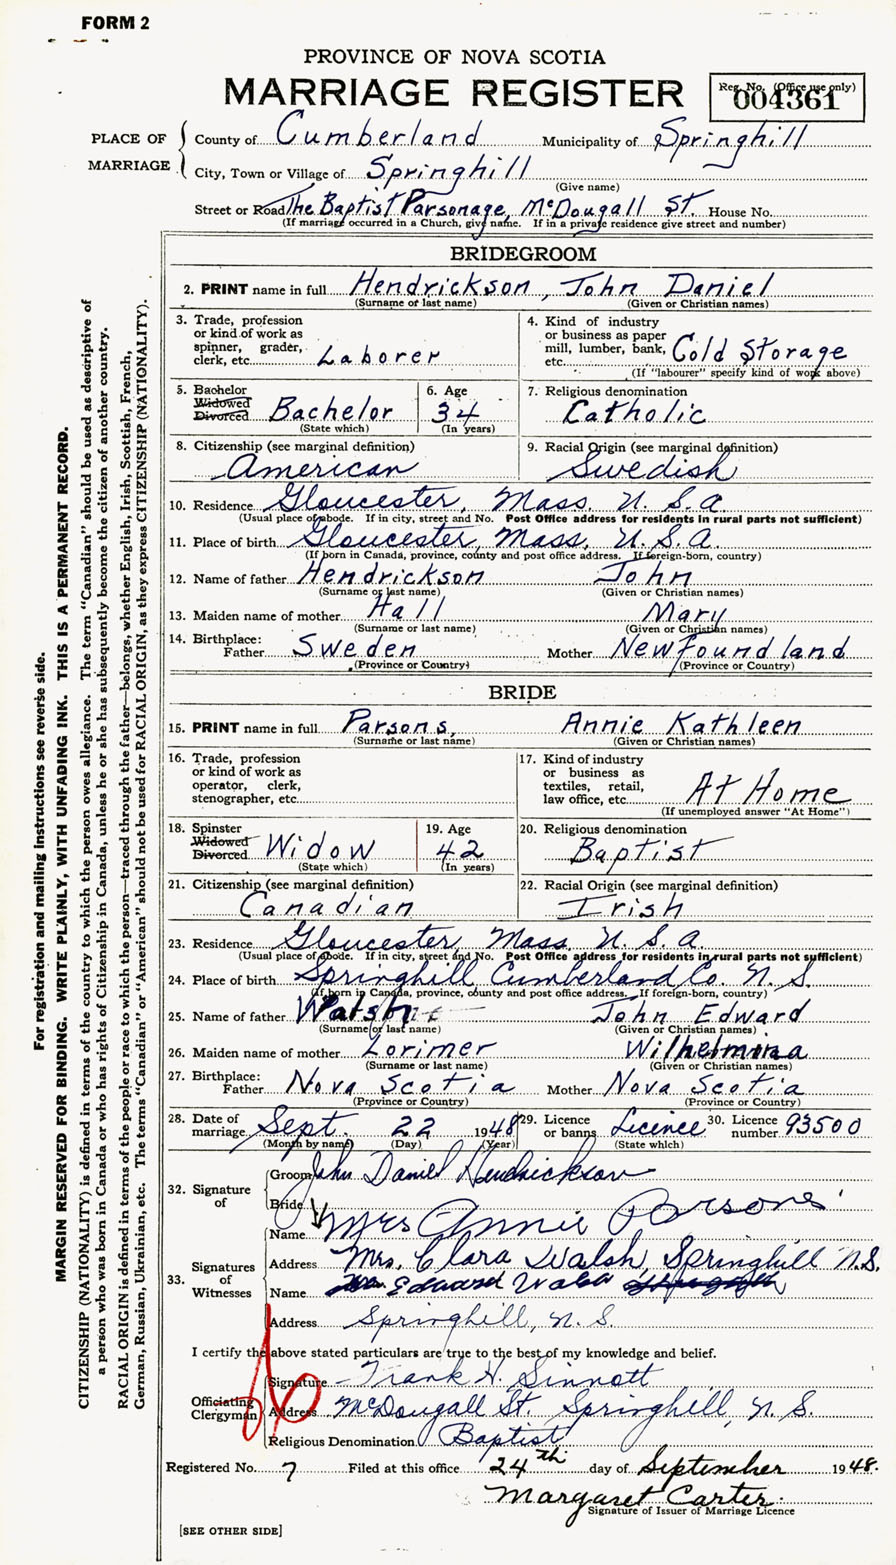 FORM 2
PROVINCE OF NOVA SCOTIA
MARRIAGE REGISTER
Reg. No. (Office use only)
004361
PLACE OF MARRIAGE
County of Cumberland Municipality of Springhill
City, Town or Village of Springhill
(Give name)
Street or Road The Baptist Parsonage, McDougall St. House No.
(If marriage occurred in a Church, give name. If in a private residence give street and number)
BRIDEGROOM
2. PRINT name in full Hendrickson, John Daniel
(Surname or last name) (Given or Christian names)
3. Trade, profession or kind of work as spinner, grader, clerk, etc. Laborer
4. Kind of industry or business as paper mill, lumber, bank, etc. Cold Storage
(If "labourer" specify kind of work above)
5. Bachelor Widowed Divorced Bachelor
(State which)
6. Age 34
(In years)
7. Religious denomination
Catholic
8. Citizenship (see marginal definition)
American
9. Racial Origin (see marginal definition)
Swedish
10. Residence Gloucester, Mass. U.S.A
(Usual place of abode. If in city, street and No. Post Office address for residents in rural parts not sufficient)
11. Place of birth Gloucester, Mass, U.S.A.
(If born in Canada, province, county and post office address. If foreign-born, country)
12. Name of father Hendrickson John
(Surname or last name) (Given or Christian names)
13. Maiden name of mother Hall Mary
(Surname or last name) (Given or Christian names)
14. Birthplace: Father Sweden Mother Newfoundland
(Province or Country) (Province or Country)
BRIDE
15. PRINT name in full Parsons, Annie Kathleen
(Surname or last name) (Given or Christian names)
16. Trade, profession or kind of work as operator, clerk, stenographer, etc.
17. Kind of industry or business as textiles, retail, law office, etc. At Home
(If unemployed answer "At Home")
18. Spinster Widowed Divorced Widow
(State which)
19. Age 42
(In years)
20. Religious denomination
Baptist
21. Citizenship (see marginal definition)
Canadian
22. Racial Origin (see marginal definition)
Irish
23. Residence Gloucester, Mass, U.S.A.
(Usual place of abode. If in city, street and No. Post Office address for residents in rural parts not sufficient)
24. Place of birth Springhill Cumberland Co. N.S.
(If born in Canada, province, county and post office address. If foreign-born, country)
25. Name of father John Edward
(Surname or last name) (Given or Christian names)
26. Maiden name of mother Lorimer Wilhelmina
(Surname or last name) (Given or Christian names)
27. Birthplace: Father Nova Scotia Mother Nova Scotia
(Province or Country) (Province or Country)
28. Date of marriage Sept. 22 1948
(Month by name) (Day) (Year)
29. Licence or banns Licence
(State which)
30. Licence number 93500
32. Signature of
Groom John Daniel Hendrickson
Bride Mrs Annie Parsons
33. Signatures of Witnesses
Name
Address Mrs. Clara Walsh, Springhill N.S.
Name Edward Walsh
Address Springhill, N.S.
I certify the above stated particulars are true to the best of my knowledge and belief.
Officiating Clergyman
Signature Frank H. Sinnott
Address McDougall St. Springhill, N.S.
Religious Denomination Baptist
Registered No. 7 Filed at this office 24th day of September 1948.
Margaret Carter
Signature of Issuer of Marriage Licence
[SEE OTHER SIDE]
For registration and mailing instructions see reverse side.
MARGIN RESERVED FOR BINDING. WRITE PLAINLY, WITH UNFADING INK. THIS IS A PERMANENT RECORD.
CITIZENSHIP (NATIONALITY) is defined in terms of the country to which the person owes allegiance. The term "Canadian" should be used as descriptive of
a person who was born in Canada or who has rights of Citizenship in Canada, unless he or she has subsequently become the citizen of another country.
RACIAL ORIGIN is defined in terms of the people or race to which the person—traced through the father—belongs, whether English, Irish, Scottish, French,
German, Russian, Ukrainian, etc. The terms "Canadian" or "American" should not be used for RACIAL ORIGIN, as they express CITIZENSHIP (NATIONALITY).